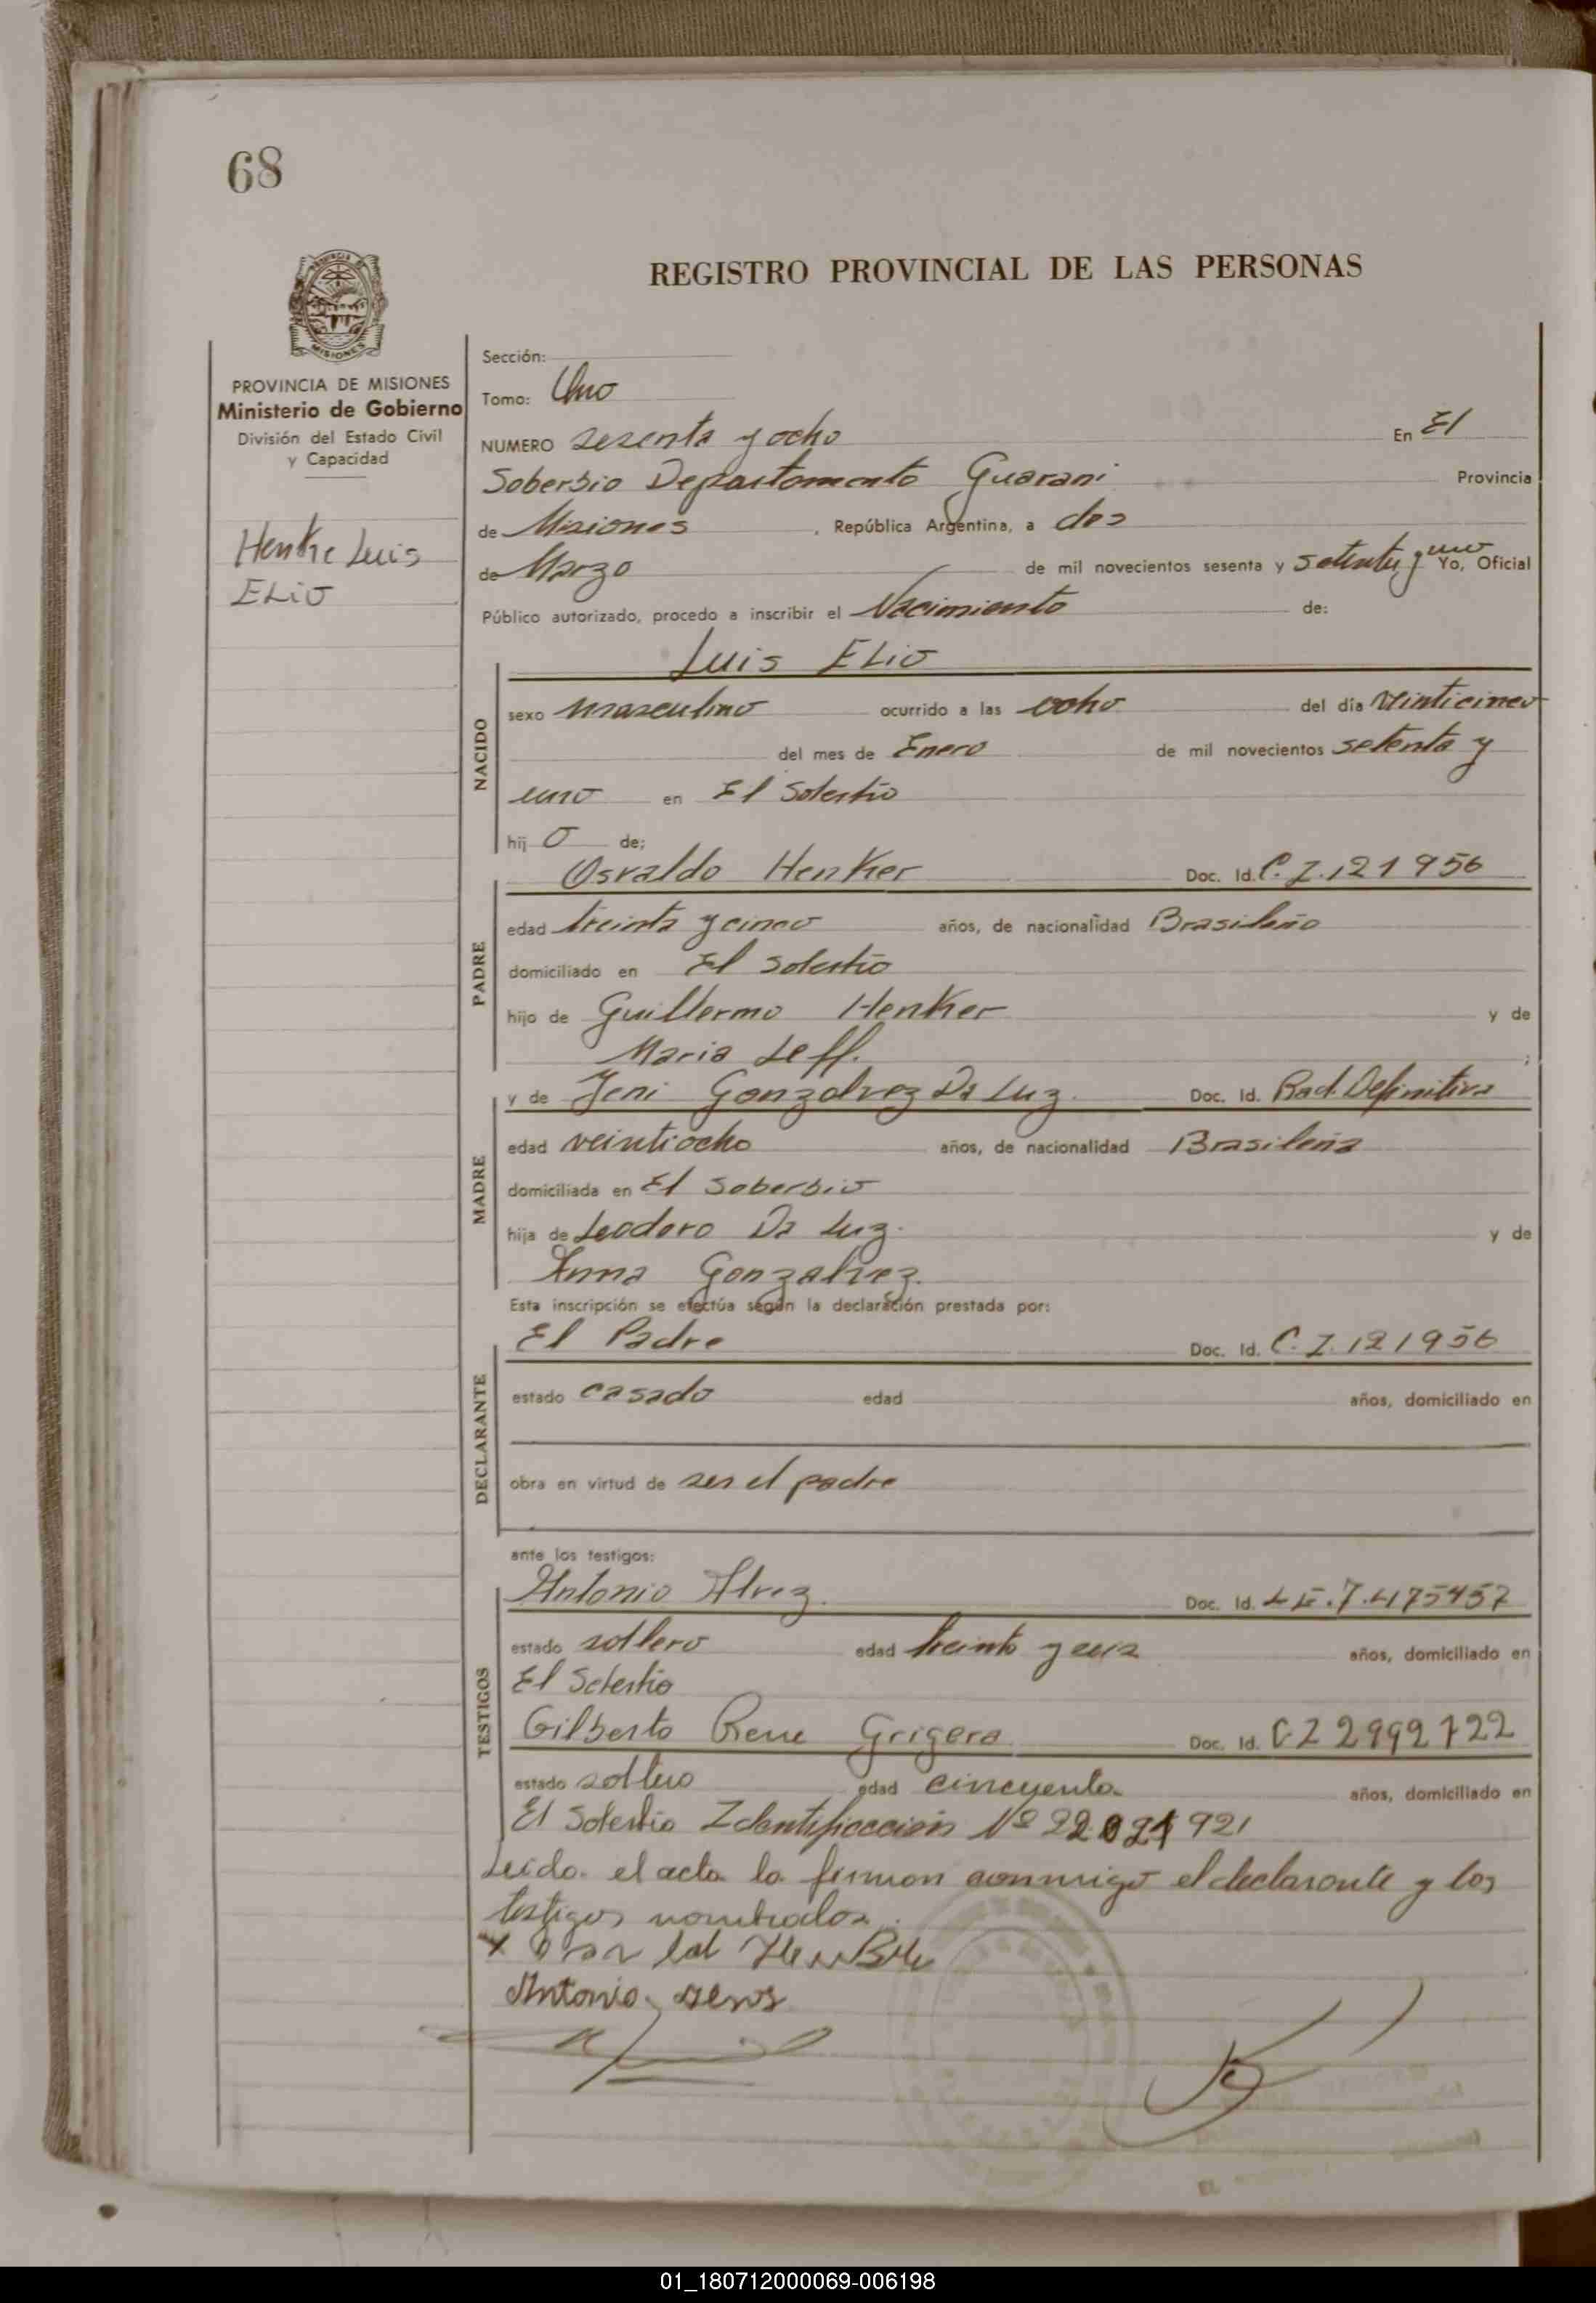 68
REGISTRO PROVINCIAL DE LAS PERSONAS
PROVINCIA DE MISIONES
Ministerio de Gobierno
División del Estado Civil
y Capacidad
Henke Luis
ELio
Sección:
Tomo: Uno
NUMERO sesenta y ocho En El
Soberbio Departamento Guarani Provincia
de Misiones , República Argentina, a dos
de Marzo de mil novecientos sesenta y setenta y uno Yo, Oficial
Público autorizado, procedo a inscribir el Nacimiento de:
Luis ELio
NACIDO
sexo masculino ocurrido a las ocho del día veinticinco
del mes de Enero de mil novecientos setenta y
uno en El Soberbio
hij o de;
Osvaldo Henker Doc. Id. C.I.121956
PADRE
edad treinta y cinco años, de nacionalidad Brasileño
domiciliado en El Soberbio
hijo de Guillermo Henker y de
Maria Leff. ;
y de Jeni Gonzalvez Da Luz. Doc. Id. Rad. Definitiva
MADRE
edad veintiocho años, de nacionalidad Brasileña
domiciliada en El Soberbio
hija de Leodoro Da Luz. y de
Anna Gonzalvez.
Esta inscripción se efectúa según la declaración prestada por:
El Padre Doc. Id. C.I.121956
DECLARANTE
estado casado edad años, domiciliado en
obra en virtud de ser el padre
ante los testigos:
Antonio Alvez. Doc. Id. LE.7.475457
TESTIGOS
estado soltero edad treinta y seis años, domiciliado en
El Soberbio
Gilberto Rene Grigera Doc. Id. CI 2992722
estado soltero edad cincuenta años, domiciliado en
El Soberbio Identificacion Nº 921
Leido el acta la firman conmigo el declarante y los
testigos nombrados.
Antonio
01_180712000069-006198